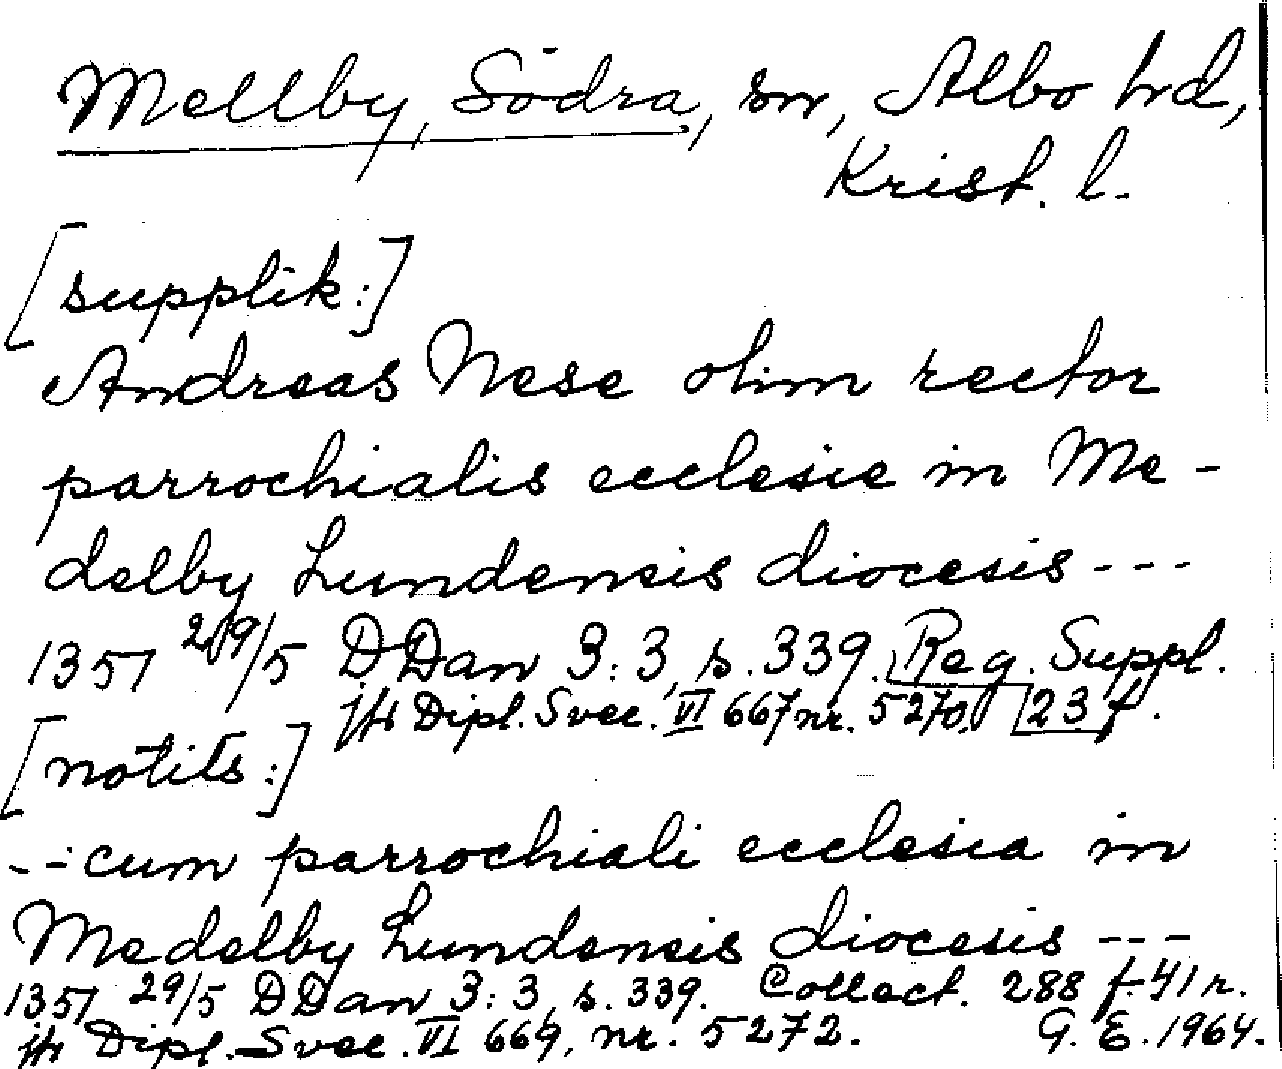 Mellby, Södra, sn, Albo hd,
Krist. l.
[supplik:]
Andreas Nese olim rector
parrochialis ecclesie in Me-
delby Lundensis diocesis ---
1351 29/5 DDan 3:3, s. 339. Reg. Suppl.
jfr Dipl. Svec. VI 667 nr. 5270. 23 f.
[notits:]
-- cum parrochiali ecclesia in
Medelby Lundensis diocesis ---
1351 29/5 DDan 3:3, s. 339. Collect. 288 f. 41 r.
jfr Dipl. Svec. VI 669, nr. 5272. G. E. 1964.